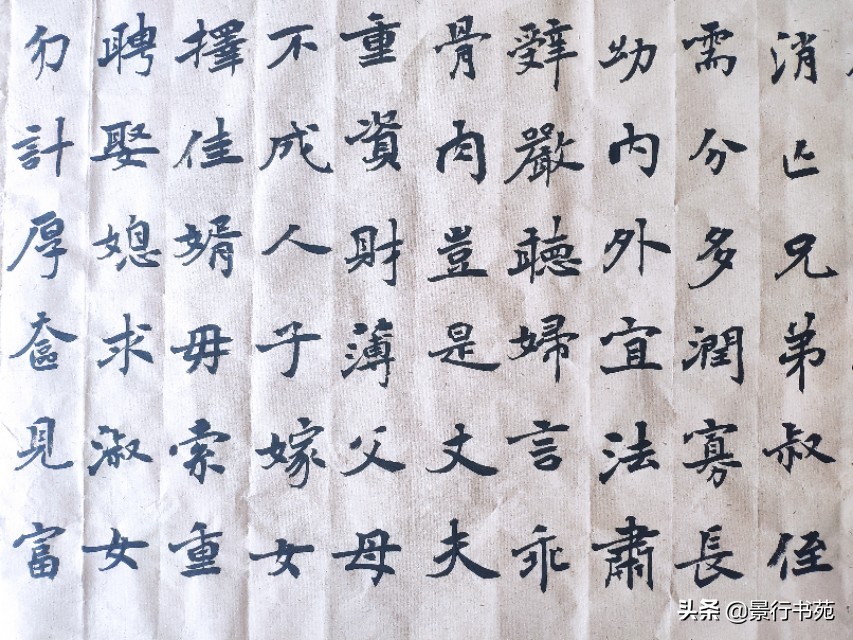 消亾兄弟叔侄
需分多潤寡長
幼内外宜法肅
辤嚴聽婦言乖
骨肉豈是丈夫
重資財薄父母
不成人子嫁女
擇佳婿毋索重
聘娶媳求淑女
勿計厚奩見富
头条 @景行书苑